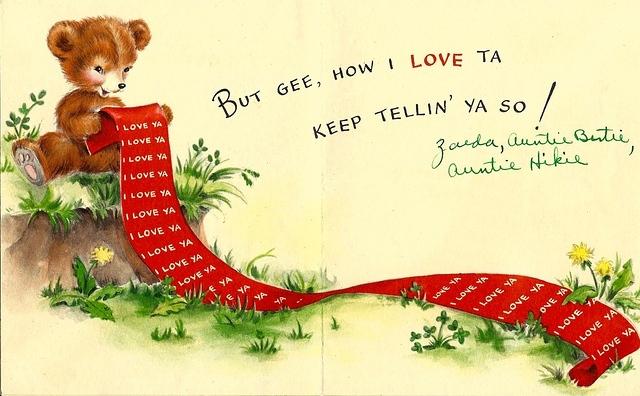 BUT GEE, HOW I LOVE TA
KEEP TELLIN' YA SO!
Zaeda, Auntie Bertie,
Auntie Hikie
I LOVE YA
I LOVE YA
I LOVE YA
I LOVE YA
I LOVE YA
I LOVE YA
I LOVE YA
I LOVE YA
I LOVE YA
I LOVE YA
LOVE YA
I LOVE YA
I LOVE YA
I LOVE YA
I LOVE YA
I LOVE YA
I LOVE YA